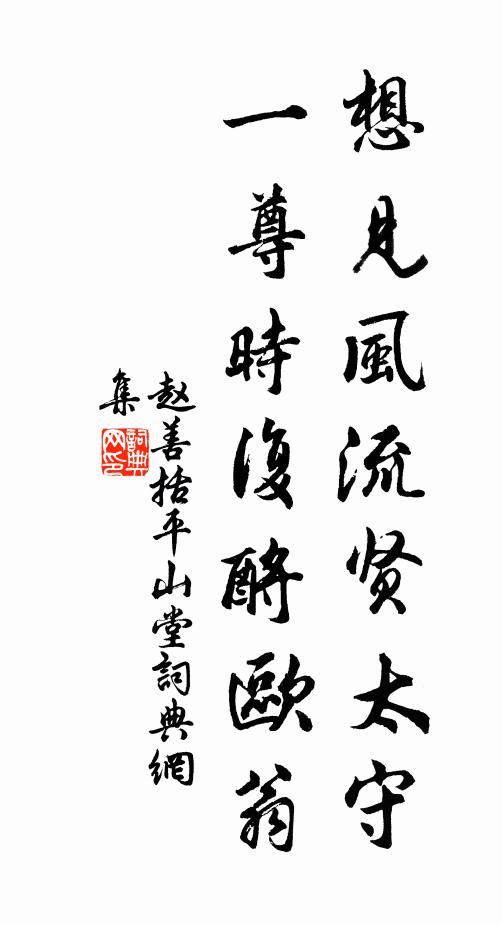 想見風流贤太守
一尊時復酹歐翁
赵善括平山堂詞典網
集
詞典
网印